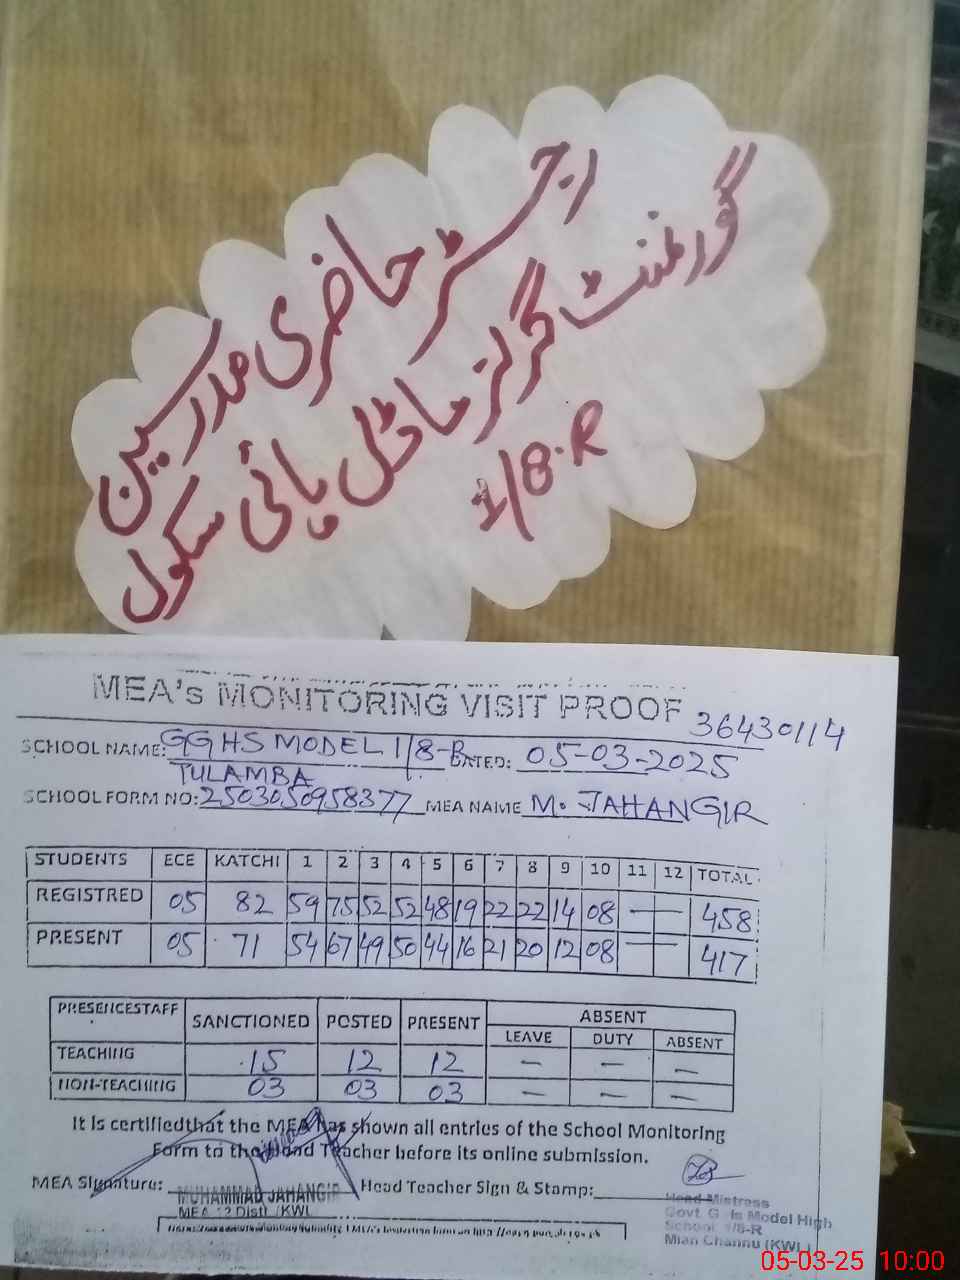 رجسٹر حاضری مدرسین
گورنمنٹ گرلز ماڈل ہائی سکول
1/8-R
MEA's MONITORING VISIT PROOF
36430114
SCHOOL NAME: GGHS MODEL 1/8-R DATED: 05-03-2025
TULAMBA
SCHOOL FORM NO: 2503050958377 MEA NAME M. JAHANGIR
STUDENTS ECE KATCHI 1 2 3 4 5 6 7 8 9 10 11 12 TOTAL
REGISTRED 05 82 59 75 52 52 48 19 22 22 14 08 — 458
PRESENT 05 71 54 67 49 50 44 16 21 20 12 08 — 417
PRESENCESTAFF SANCTIONED POSTED PRESENT ABSENT
LEAVE DUTY ABSENT
TEACHING 15 12 12 — — —
NON-TEACHING 03 03 03 — — —
It is certifiedthat the MEA has shown all entries of the School Monitoring
Form to the Head Teacher before its online submission.
MEA Signature: Head Teacher Sign & Stamp:
MUHAMMAD JAHANGIR
MEA 12 Distt. (KWL
Head Mistress
Govt. G ls Model High
School 1/8-R
Mian Channu (KWL)
05-03-25 10:00